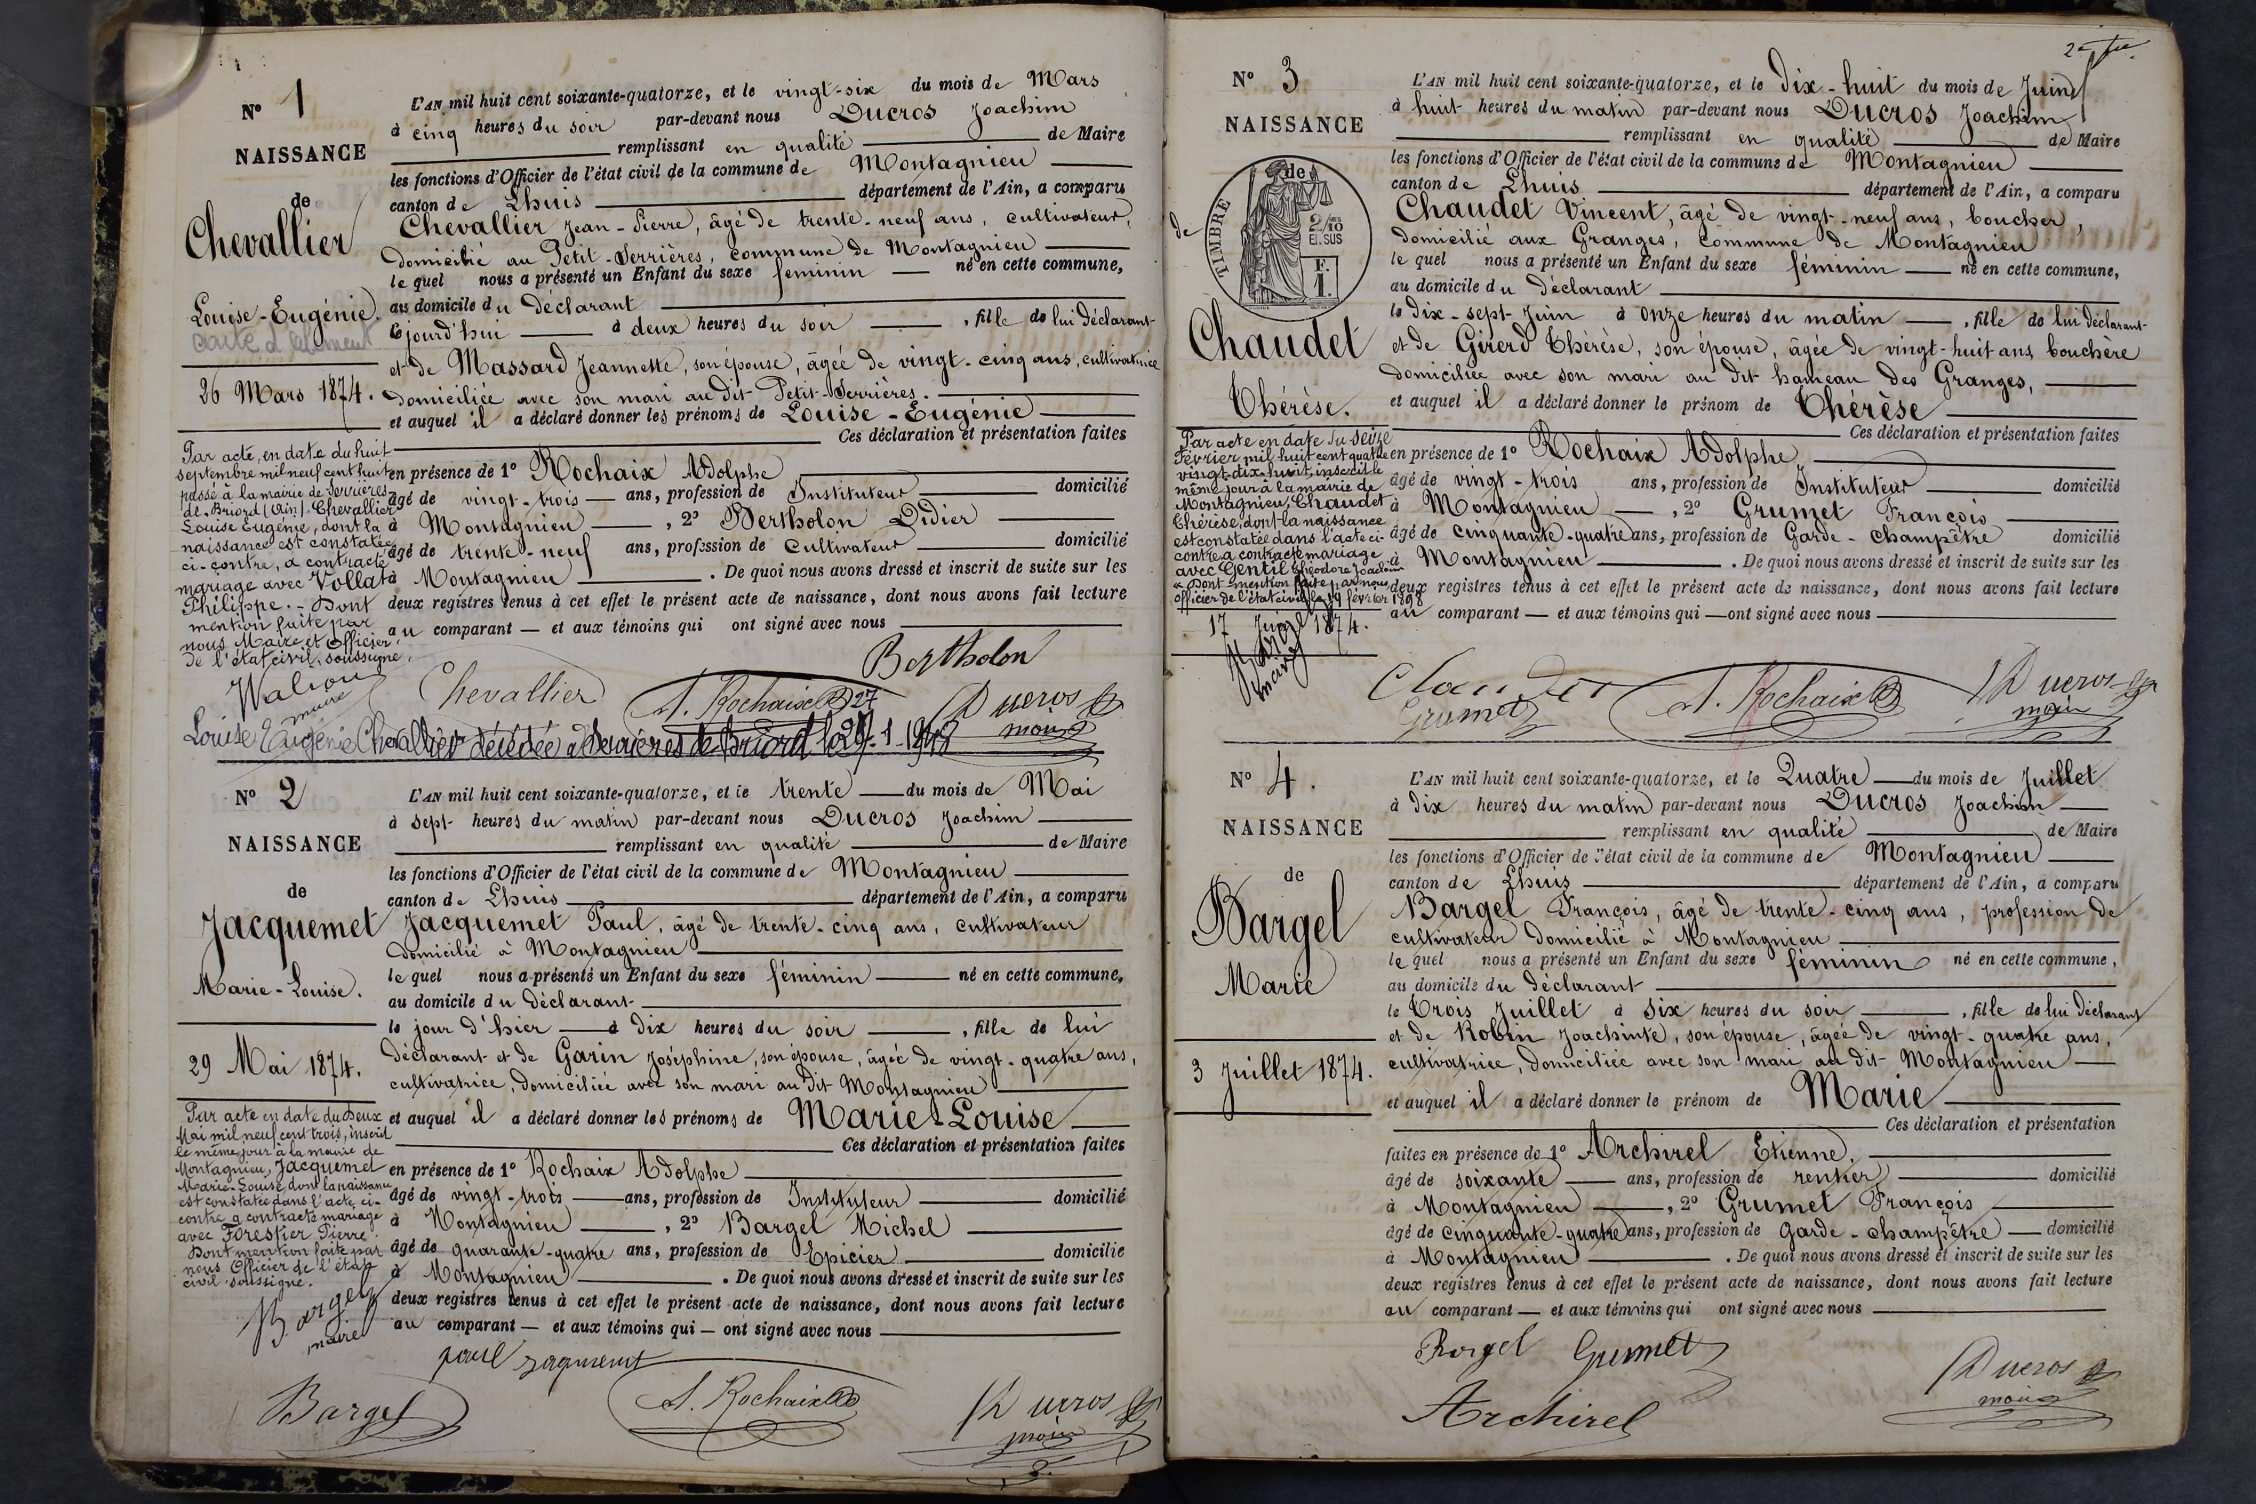 N° 1
NAISSANCE
de
Chevallier
Louise-Eugénie.
26 Mars 1874.
Par acte, en date du huit
septembre mil neuf cent huit
passé à la mairie de Serrières-
de-Briord (Ain) Chevallier
Louise Eugénie, dont la
naissance est constatée
ci-contre, a contracté
mariage avec Vollat
Philippe. - Dont
mention faite par
nous Maire et Officier
de l'état civil, soussigné.
maire
L'AN mil huit cent soixante-quatorze, et le vingt-six du mois de Mars
à cinq heures du soir par-devant nous Ducros Joachim
remplissant en qualité de Maire
les fonctions d'Officier de l'état civil de la commune de Montagnieu
canton de Lhuis département de l'Ain, a comparu
Chevallier Jean-Pierre, âgé de trente-neuf ans, cultivateur,
domicilié au Petit-Serrières, commune de Montagnieu
le quel nous a présenté un Enfant du sexe féminin né en cette commune,
au domicile du déclarant
cejourd'hui à deux heures du soir, fille de lui déclarant
et de Massard Jeannette, son épouse, âgée de vingt-cinq ans, cultivatrice
domiciliée avec son mari au dit Petit-Serrières.
et auquel il a déclaré donner les prénoms de Louise-Eugénie
Ces déclaration et présentation faites
en présence de 1° Rochaix Adolphe
âgé de vingt-trois ans, profession de Instituteur domicilié
à Montagnieu, 2° Bertholon Didier
âgé de trente-neuf ans, profession de Cultivateur domicilié
à Montagnieu. De quoi nous avons dressé et inscrit de suite sur les
deux registres tenus à cet effet le présent acte de naissance, dont nous avons fait lecture
au comparant et aux témoins qui ont signé avec nous
Bertholon
Chevallier A. Rochaix Ducros
maire
Louise Eugénie Chevallier décédée à Serrières de Briord le
N° 2
NAISSANCE
de
Jacquemet
Marie-Louise.
29 Mai 1874.
Par acte en date du deux
Mai mil neuf cent trois, inscrit
le même jour à la mairie de
Montagnieu, Jacquemet
Marie-Louise dont la naissance
est constatée dans l'acte ci-
contre a contracté mariage
avec Forestier Pierre.
Dont mention faite par
nous Officier de l'état
civil soussigné.
Bargel
maire
L'AN mil huit cent soixante-quatorze, et le trente du mois de Mai
à sept heures du matin par-devant nous Ducros Joachim
remplissant en qualité de Maire
les fonctions d'Officier de l'état civil de la commune de Montagnieu
canton de Lhuis département de l'Ain, a comparu
Jacquemet Paul, âgé de trente-cinq ans, cultivateur
domicilié à Montagnieu
le quel nous a présenté un Enfant du sexe féminin né en cette commune,
au domicile du déclarant
le jour d'hier à dix heures du soir, fille de lui
déclarant et de Garin Joséphine, son épouse, âgée de vingt-quatre ans,
cultivatrice, domiciliée avec son mari au dit Montagnieu
et auquel il a déclaré donner les prénoms de Marie-Louise
Ces déclaration et présentation faites
en présence de 1° Rochaix Adolphe
âgé de vingt-trois ans, profession de Instituteur domicilié
à Montagnieu, 2° Bargel Michel
âgé de quarante-quatre ans, profession de Epicier domicilié
à Montagnieu. De quoi nous avons dressé et inscrit de suite sur les
deux registres tenus à cet effet le présent acte de naissance, dont nous avons fait lecture
au comparant et aux témoins qui ont signé avec nous
paul
Bargel A. Rochaix Ducros
maire
N° 3
NAISSANCE
de
TIMBRE
2/10 EN SUS
F. 1.
de
Chaudet
Thérèse.
Par acte en date du seize
Février mil huit cent quatre
vingt-dix-huit, inscrit le
même jour à la mairie de
Montagnieu, Chaudet
Thérèse, dont la naissance
est constatée dans l'acte ci-
contre a contracté mariage
avec Gentil Théodore Joachim
Dont mention faite par nous
officier de l'état civil le 19 février 1898
17 Juin 1874.
maire
L'AN mil huit cent soixante-quatorze, et le Dix-huit du mois de Juin
à huit heures du matin par-devant nous Ducros Joachim
remplissant en qualité de Maire
les fonctions d'Officier de l'état civil de la commune de Montagnieu
canton de Lhuis département de l'Ain, a comparu
Chaudet Vincent, âgé de vingt-neuf ans, boucher,
domicilié aux Granges, commune de Montagnieu
le quel nous a présenté un Enfant du sexe féminin né en cette commune,
au domicile du déclarant
le dix-sept Juin à onze heures du matin, fille de lui déclarant
et de Girerd Thérèse, son épouse, âgée de vingt-huit ans, bouchère
domiciliée avec son mari au dit hameau des Granges,
et auquel il a déclaré donner le prénom de Thérèse
Ces déclaration et présentation faites
en présence de 1° Rochaix Adolphe
âgé de vingt-trois ans, profession de Instituteur domicilié
à Montagnieu, 2° Grumet François
âgé de cinquante-quatre ans, profession de Garde-champêtre domicilié
à Montagnieu. De quoi nous avons dressé et inscrit de suite sur les
deux registres tenus à cet effet le présent acte de naissance, dont nous avons fait lecture
au comparant et aux témoins qui ont signé avec nous
Grumet A. Rochaix Ducros
maire
N° 4.
NAISSANCE
de
Bargel
Marie
3 Juillet 1874.
L'AN mil huit cent soixante-quatorze, et le Quatre du mois de Juillet
à dix heures du matin par-devant nous Ducros Joachim
remplissant en qualité de Maire
les fonctions d'Officier de l'état civil de la commune de Montagnieu
canton de Lhuis département de l'Ain, a comparu
Bargel François, âgé de trente-cinq ans, profession de
cultivateur domicilié à Montagnieu
le quel nous a présenté un Enfant du sexe féminin né en cette commune,
au domicile du déclarant
le Trois Juillet à six heures du soir, fille de lui déclarant
et de Robin Joachinte, son épouse, âgée de vingt-quatre ans,
cultivatrice, domiciliée avec son mari au dit Montagnieu
et auquel il a déclaré donner le prénom de Marie
Ces déclaration et présentation
faites en présence de 1° Archirel Etienne,
âgé de soixante ans, profession de rentier domicilié
à Montagnieu, 2° Grumet François
âgé de cinquante-quatre ans, profession de Garde-champêtre domicilié
à Montagnieu. De quoi nous avons dressé et inscrit de suite sur les
deux registres tenus à cet effet le présent acte de naissance, dont nous avons fait lecture
au comparant et aux témoins qui ont signé avec nous
Bargel Grumet Ducros
maire
Archirel